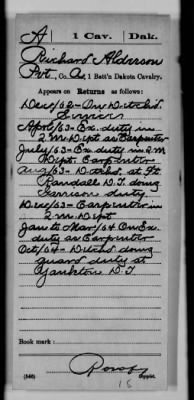 A | 1 Cav. | Dak.
Richard Alderson
Pvt., Co. A, 1 Batt'n Dakota Cavalry.
Appears on Returns as follows:
Dec/62 - On Detch'd
Service
April/63 - Ex. duty in
2. M. Dept as Carpenter
July/63 - Ex. duty in 2 M
Dept. Carpenter
Aug/63 - Detchd. at Ft.
Randall D.T. doing
Garrison duty
Dec/63 - Carpenter in
2. M. Dept
Jan to Mar/64 On Ex.
duty as Carpenter
Oct/64 - Detchd doing
guard duty at
Yankton D.T
Book mark:
(546)
Copyist.